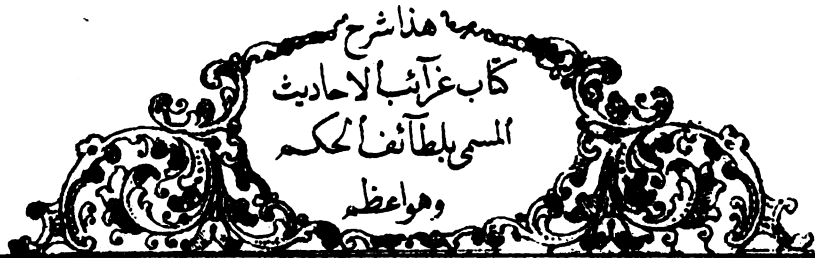 هذا شرح
كتاب غرآئب الاحاديث
المسمى بلطآئف الحكم
وهو اعظم